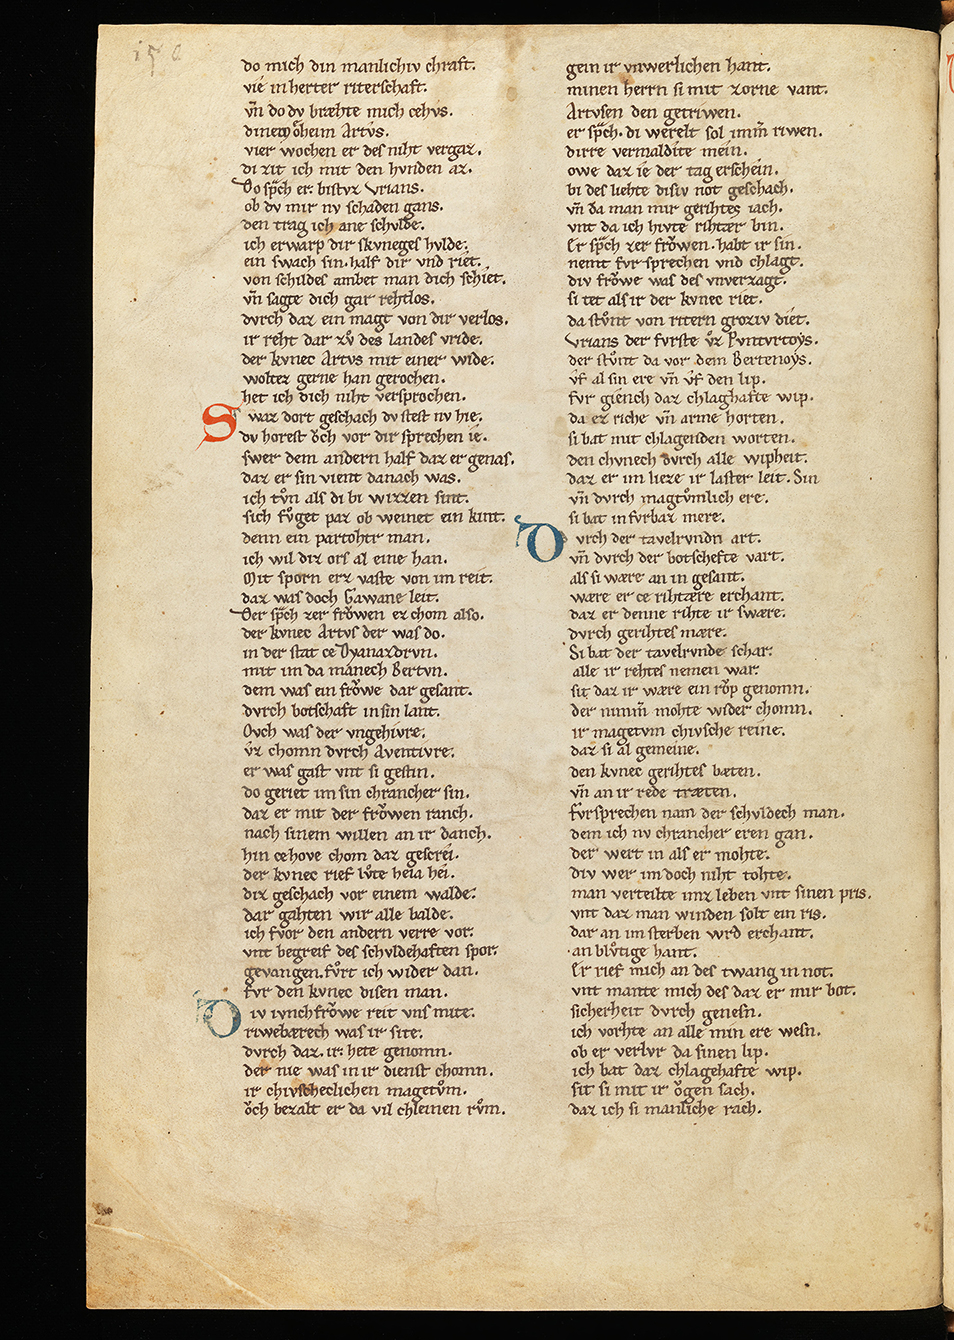 150
do mich din manlichiv chraft.
vie in herter riterschaft.
vn̄ do dv bræhte mich cehvs.
dinem oͤheim Artvs.
vier wochen er des niht vergaz.
di zit ich mit den hvnden az.
Do sp̄ch er. bistvz Vrians.
ob dv mir nv schaden gans.
den trag ich ane schvlde.
ich erwarp dir skvneges hvlde.
ein swach sin. half dir vnd riet.
von schildes ambet man dich schiet.
vn̄ sagte dich gar rehtlos.
dvrch daz ein magt von dir verlos.
ir reht dar zvͦ des landes vride.
der kvnec Artvs mit einer wide.
woltez gerne han gerochen.
het ich dich niht versprochen.
Swaz dort geschach dv stest nv hie.
dv horest oͮch vor dir sprechen ie.
swer dem andern half daz er genas.
daz er sin vient danach was.
ich tvͦn als di bi wizzen sint.
sich fvͦget paz ob weinet ein kint.
denn ein partohtr man.
ich wil diz ors al eine han.
Mit sporn erz vaste von im reit.
daz was doch Gawane leit.
Der sp̄ch zer froͮwen ez chom also.
der kvnec Artvs der was do.
in der stat ce Dyanazdrvn.
mit im da manech Bertvn.
dem was ein froͮwe dar gesant.
dvrch botschaft in sin lant.
Ovch was der vngehivre.
vͦz chomn dvrch Aventivre.
er was gast vnt si gestin.
do geriet im sin chrancher sin.
daz er mit der froͮwen ranch.
nach sinem willen an ir danch.
hin ce hove chom daz gescrei.
der kvnec rief lvͦte heia hei.
diz geschach vor einem walde.
dar gahten wir alle balde.
ich fvor den andern verre vor.
vnt begreif des schvldehaften spor.
gevangen. fvͦrt ich wider dan.
fvr den kvnec disen man.
Div ivnchfroͮwe reit vns mite.
riwebærech was ir site.
dvrch daz. ir. hete genomn.
der nie was in ir dienst chomn.
ir chivscheclichen magetvͦm.
oͮch bezalt er da vil chleinen rvͦm.
gein ir vnwerlichen hant.
minen herrn si mit zorne vant.
Artvsen den getriwen.
er sp̄ch. di werelt sol imm̄ riwen.
dirre vermaldite mein.
owe daz ie der tag erschein.
bi des liehte disiv not geschach.
vn̄ da man mir gerihtes iach.
vnt da ich hivte rihtær bin.
Er sp̄ch zer froͮwen. habt ir sin.
nemt fvr sprechen vnd chlagt.
div froͮwe was des vnverzagt.
si tet als ir der kvnec riet.
da stvͦnt von ritern groziv diet.
Vrians der fvrste vͦz Pvntvrtoys.
der stvͦnt da vor dem Bertenoys.
vͦf al sin ere vn̄ vͦf den lip.
fvr giench daz chlaghafte wip.
da ez riche vn̄ arme horten.
si bat mit chlagenden worten.
den chvnech dvrch alle wipheit.
daz er im lieze ir laster leit. Sin
vn̄ dvrch magtvͦmlich ere.
si bat in fvrbaz mere.
Dvrch der tavelrvndn art.
vn̄ dvrch der botschefte vart.
als si wære an in gesant.
wære er ce rihtære erchant.
daz er denne rihte ir swære.
dvrch gerihtes mære.
Si bat der tavelrvnde schar.
alle ir rehtes nemen war.
sit daz ir wære ein roͮp genomn.
der nimm̄ mohte wider chomn.
ir magetvm chivsche reine.
daz si al gemeine.
den kvnec gerihtes bæten.
vn̄ an ir rede træten.
Fvrsprechen nam der schvldech man.
dem ich nv chrancher eren gan.
der wert in als er mohte.
div wer im doch niht tohte.
man verteilte imz leben vnt sinen pris.
vnt daz man winden solt ein ris.
dar an im sterben wrd erchant.
an blvͦtige hant.
Er rief mich an des twang in not.
vnt mante mich des daz er mir bot.
sicherheit dvrch genesn.
ich vorhte an alle min ere wesn.
ob er verlvr da sinen lip.
ich bat daz chlagehafte wip.
sit si mit ir oͮgen sach.
daz ich si manliche rach.